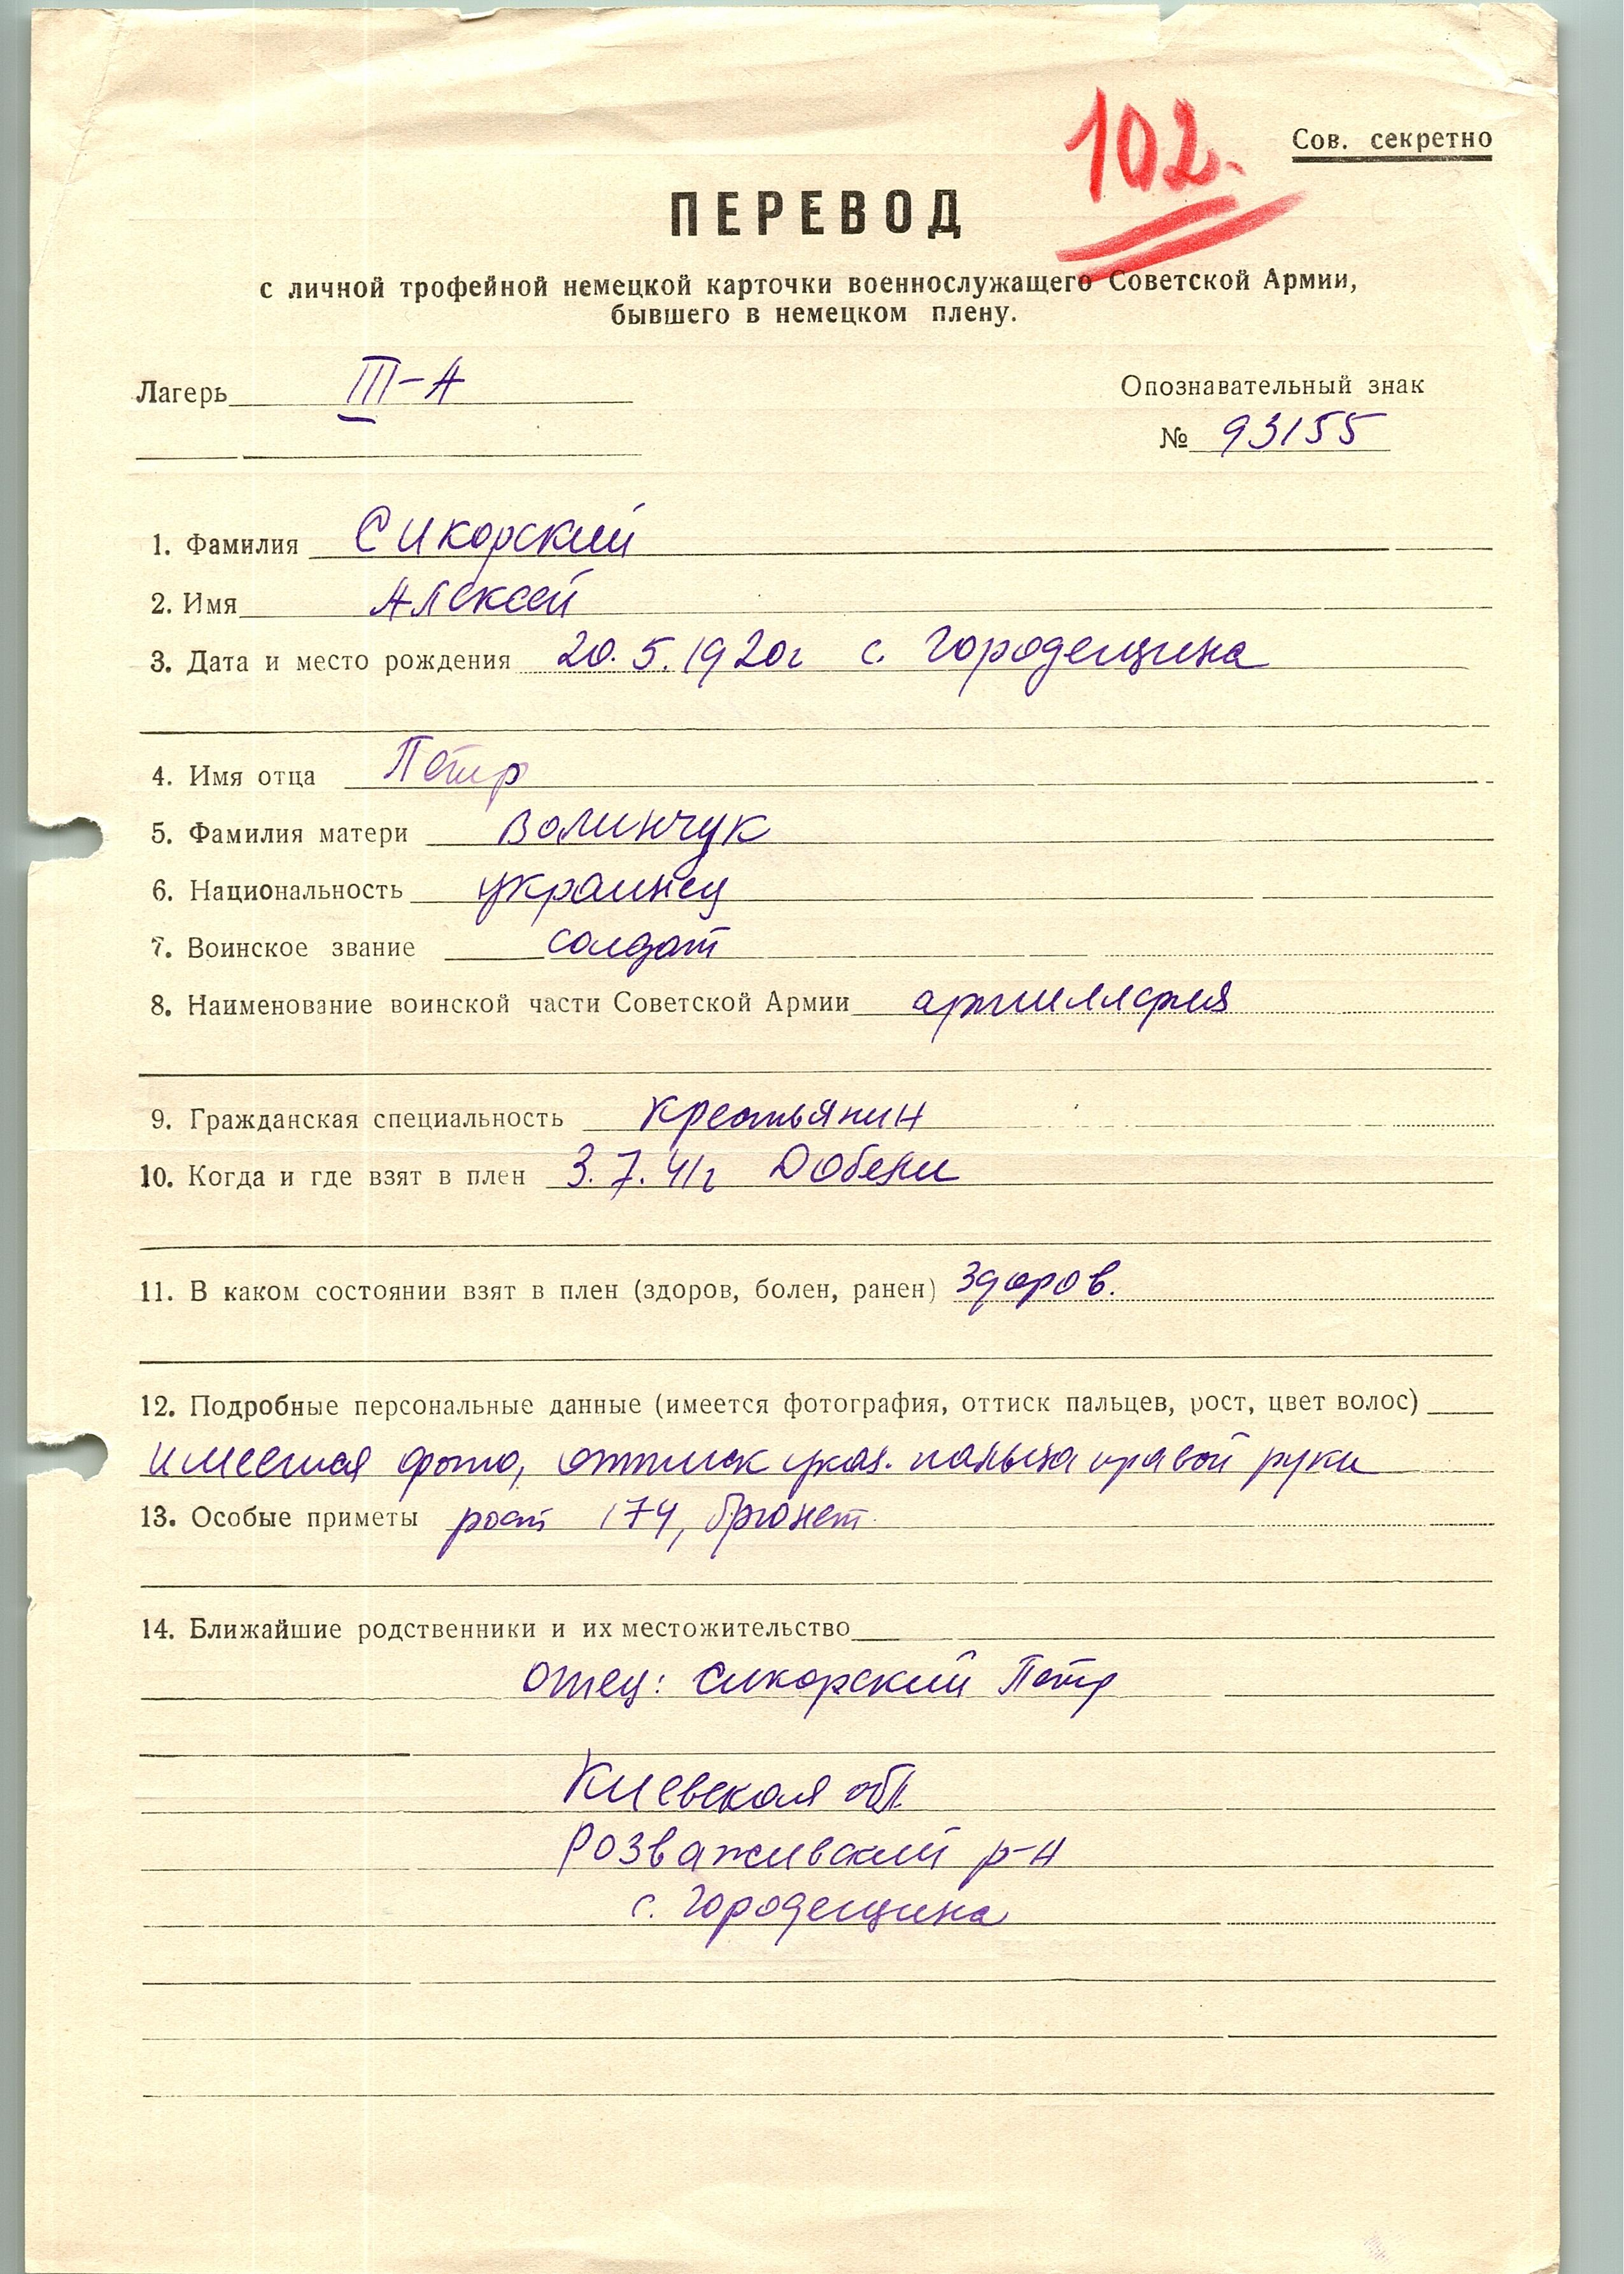 102.
Сов. секретно
ПЕРЕВОД
с личной трофейной немецкой карточки военнослужащего Советской Армии,
бывшего в немецком плену.
Лагерь III-А
Опознавательный знак
№ 93155
1. Фамилия Сикорский
2. Имя Алексей
3. Дата и место рождения 20.5.1920г с. Городещина
4. Имя отца Петр
5. Фамилия матери Волинчук
6. Национальность украинец
7. Воинское звание солдат
8. Наименование воинской части Советской Армии артиллерия
9. Гражданская специальность Крестьянин
10. Когда и где взят в плен 3.7.41г Добени
11. В каком состоянии взят в плен (здоров, болен, ранен) здоров.
12. Подробные персональные данные (имеется фотография, оттиск пальцев, рост, цвет волос)
имеется фото, оттиск указ. пальца правой руки
13. Особые приметы рост 174, брюнет
14. Ближайшие родственники и их местожительство
отец: Сикорский Петр
Киевская обл.
Розваживский р-н
с. Городещина